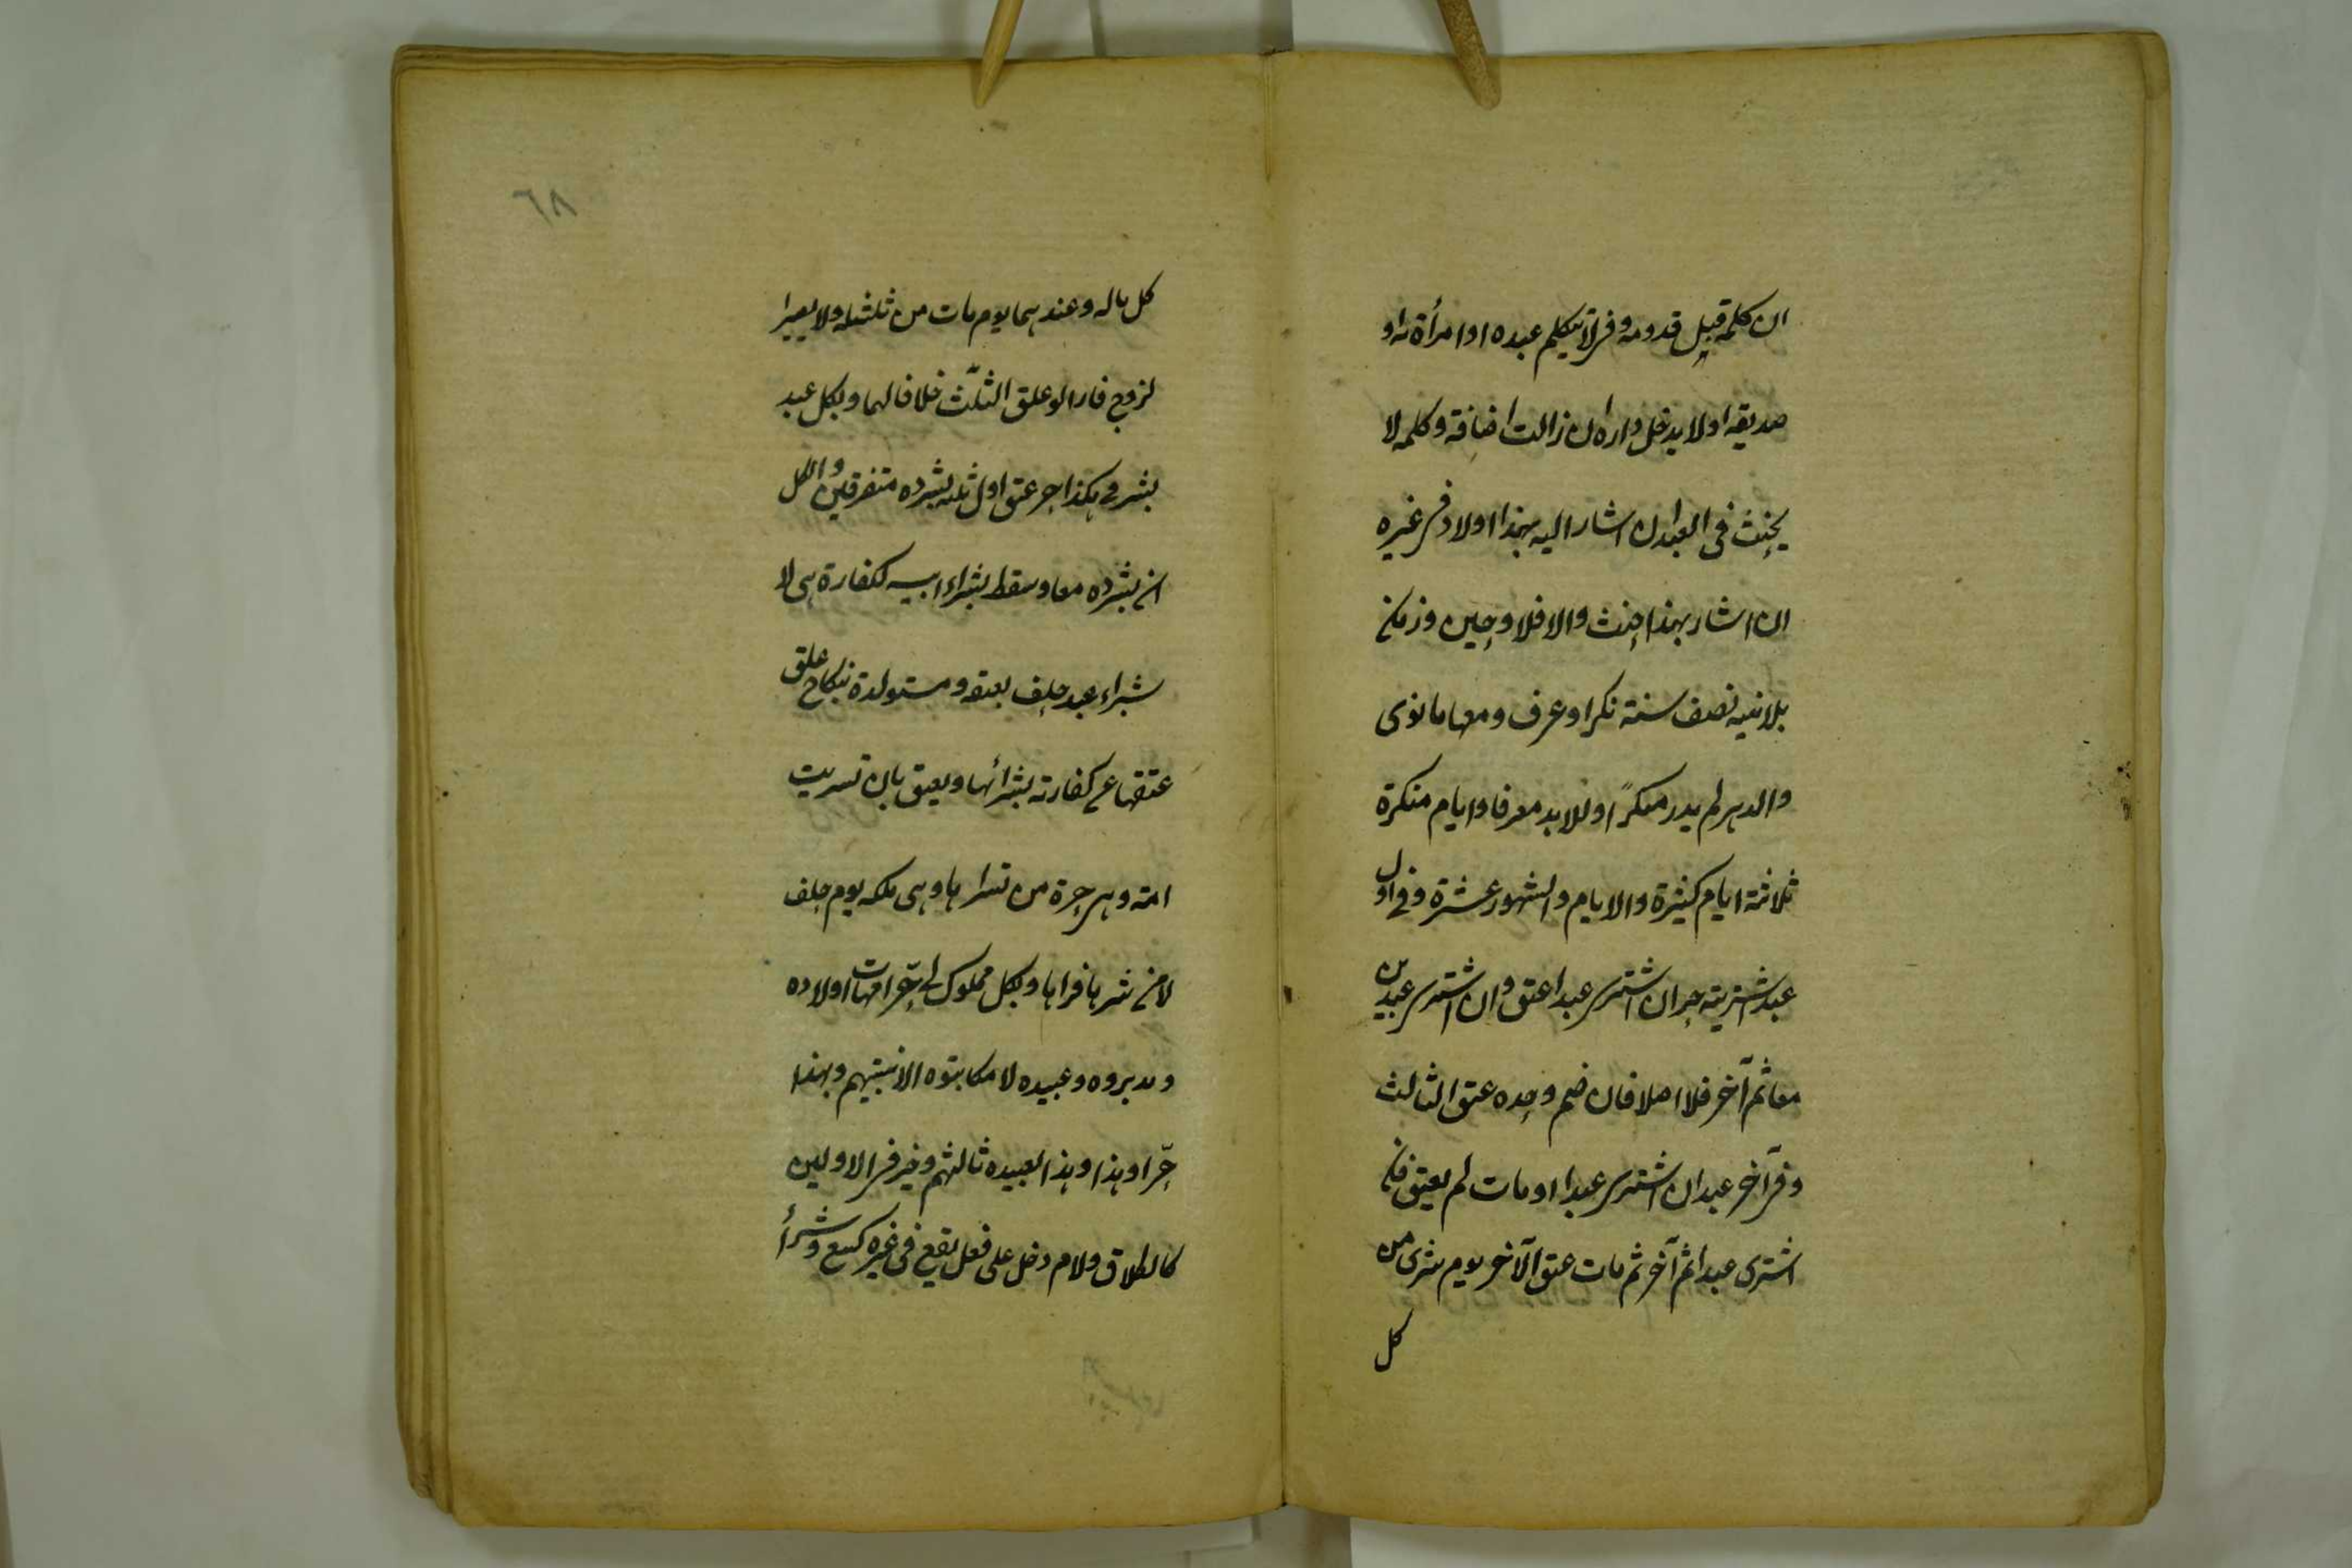 ان كلمه قبل قدومه وفى لا يكلم عبده او امرأة له او
صديقه او لا يدخل داره ان زالت اضافته وكلمه لا
يحنث فى العبد ان اشار اليه بهذا اولا وفى غيره
ان اشار بهذا حنث والا فلا وحين وزمان
بلانيه نصف سنة نكر او عرف ومعها ما نوى
والدهر لم يدر منكرًا وللابد معرفا وايام منكرة
ثلاثة ايام كثيرة والايام والشهور عشرة وفى اول
عبد اشتريته حر ان اشترى عبدا عتق وان اشترى عبدين
معا ثم آخر فلا اصلا فان ضم وحده عتق الثالث
وفى آخر عبد ان اشترى عبدا ومات لم يعتق فان
اشترى عبدا ثم آخر ثم مات عتق الآخر يوم شرى من
كل
٦٨
كل ماله وعندهما يوم مات من ثلثه ولا يصير
الزوج فارا لو علق الثلث خلافا لهما وبكل عبد
بشرنى بكذا حر عتق اول ثلثه بشروه متفرقين والكل
ان بشروه معا وسقط بشراء ابيه لكفارة هى لا
شراء عبد حلف بعتقه ومستولدة بنكاح علق
عتقها عن كفارته بشرائها ويعتق بان تسريت
امة وهى حرة من تسراها وهى ملكه يوم حلف
لا من شراها فتراها وبكل مملوك لى حرّ امهات اولاده
ومدبروه وعبيده لا مكاتبوه الا بنيتهم وبهذا
حرّ او هذا وهذا لعبيده ثالثهم وخير فى الاولين
كالطلاق ولام دخل على فعل يقع فى غيره كبيع وشراء